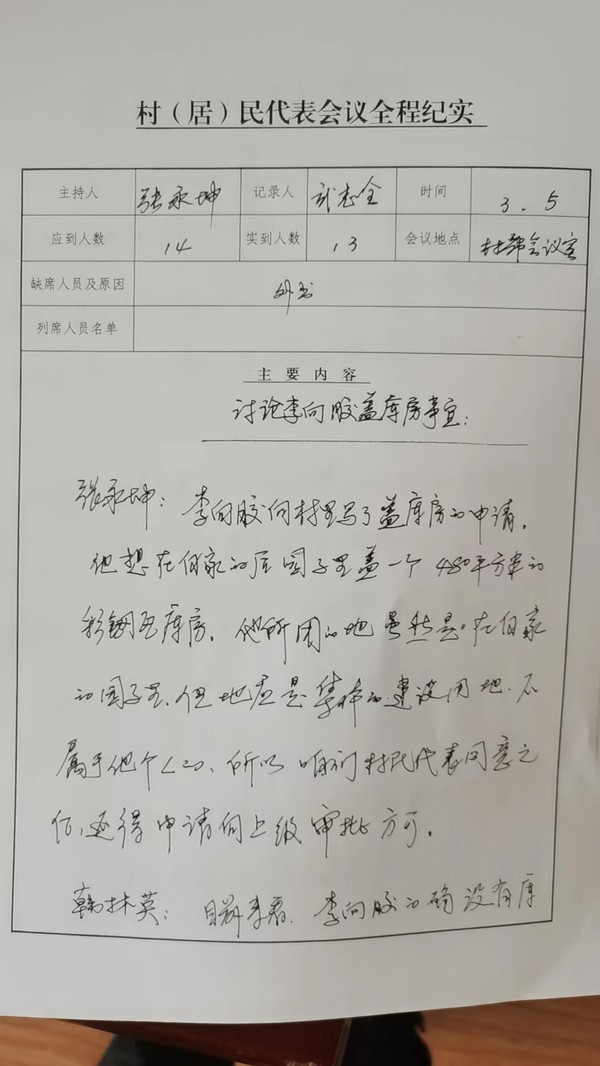 村（居）民代表会议全程纪实
主持人 张永坤 记录人 武志全 时间 3.5
应到人数 14 实到人数 13 会议地点 村部会议室
缺席人员及原因 外出
列席人员名单
主要内容
讨论李向胶盖库房事宜：
张永坤：李向胶向村里写了盖库房的申请，
他想在自家的后园子里盖一个480平方米的
彩钢瓦库房，他所用的地虽然是在自家
的园子里，但地还是集体的建设用地，不
属于他个人的，所以咱们村民代表同意之
后，还得申请向上级审批方可。
韩林英：目前来看，李向胶的确没有库